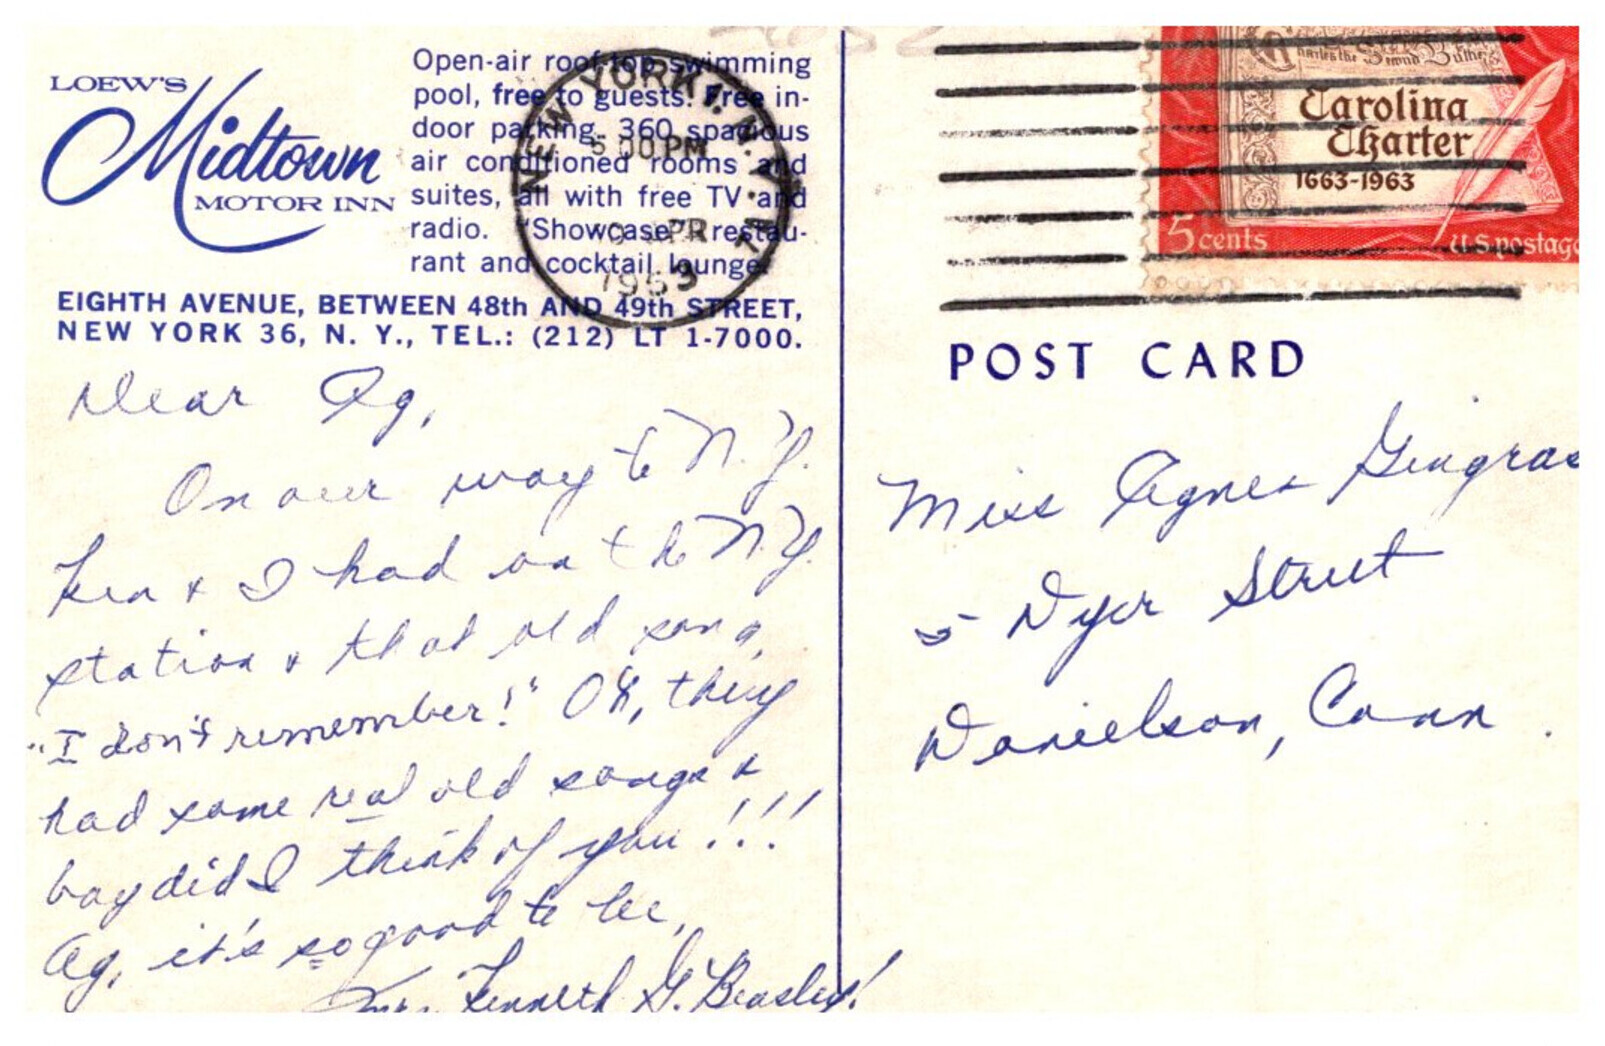 LOEW'S
Midtown
MOTOR INN
Open-air roof-top swimming
pool, free to guests. Free in-
door parking. 360 spacious
air conditioned rooms and
suites, all with free TV and
radio. "Showcase" restau-
rant and cocktail lounge.
EIGHTH AVENUE, BETWEEN 48th AND 49th STREET,
NEW YORK 36, N. Y., TEL.: (212) LT 1-7000.
NEW YORK 1, N.Y.
5 00 PM
APR
1963
Dear Ag,
On our way to N.Y.
Ken & I had on the N.Y.
station & that old song,
"I don't remember!" Oh, they
had some real old songs &
boy did I think of you!!!
Ag, it's so good to be,
Mrs. Kenneth G. Beasley!
Charles the Second
Carolina
Charter
1663-1963
5 cents
U.S. postage
POST CARD
Miss Agnes Gingras
5 Dyer Street
Danielson, Conn.